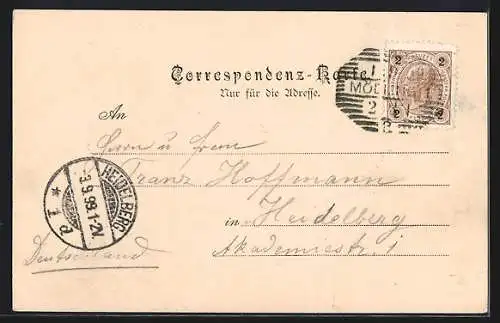 Correspondenz-Karte
Nur für die Adresse.
An
Herrn u Frau
Franz Hoffmann
in Heidelberg
Akademiestr. 1
Deutschland
HEIDELBERG
3.9.99.1-2N.
* 1 a
2 2
2 2
1
MÖDLING
2